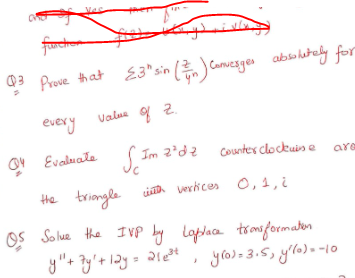 function f(z) = u(x,y) + i v(x,y)
Q3 Prove that Σ3ⁿ sin (z/4ⁿ) Converges absolutely for
every value of z.
Q4 Evaluate ∫_C Im z² dz counterclockwise aro
the triangle with vertices 0, 1, i
Q5 Solve the IVP by Laplace transformation
y'' + 7y' + 12y = 21e³ᵗ , y(0) = 3.5, y'(0) = -10